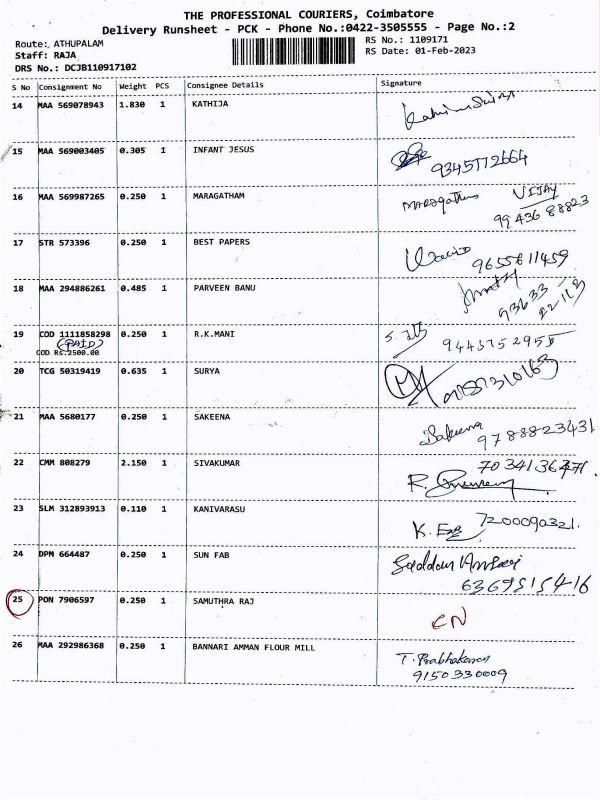 THE PROFESSIONAL COURIERS, Coimbatore
Delivery Runsheet - PCK - Phone No.:0422-3505555 - Page No.:2
Route: ATHUPALAM
RS No.: 1109171
Staff: RAJA
RS Date: 01-Feb-2023
DRS No.: DCJB110917102
S No Consignment No Weight PCS Consignee Details Signature
14 MAA 569078943 1.830 1 KATHIJA
15 MAA 569003405 0.305 1 INFANT JESUS
9345172664
16 MAA 569987265 0.250 1 MARAGATHAM Maragatham VIJAY
99436 88823
17 STR 573396 0.250 1 BEST PAPERS
9655811459
18 MAA 294886261 0.485 1 PARVEEN BANU
93633 22113
19 COD 1111858298 0.250 1 R.K.MANI
(PAID)
9443752955
COD Rs:2500.00
20 TCG 50319419 0.635 1 SURYA
21 MAA 5680177 0.250 1 SAKEENA Sakeena
9788823431
22 CMM 808279 2.150 1 SIVAKUMAR 7034136471.
R.
23 SLM 312893913 0.110 1 KANIVARASU
K. 7200090321.
24 DPM 664487 0.250 1 SUN FAB Saddam Ansari
6369515416
25 PON 7906597 0.250 1 SAMUTHRA RAJ
CN
26 MAA 292986368 0.250 1 BANNARI AMMAN FLOUR MILL
T. Prabhakaran
9150330009